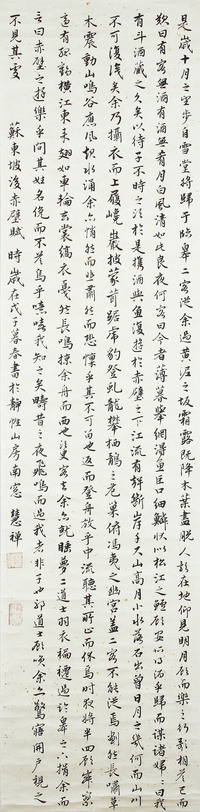 是歲十月之望步自雪堂將歸于臨皋二客從余過黃泥之坂霜露既降木葉盡脫人影在地仰見明月顧而樂之行歌相答已而
歎曰有客無酒有酒無肴月白風清如此良夜何客曰今者薄暮舉網得魚巨口細鱗狀似松江之鱸顧安所得酒乎歸而謀諸婦婦曰我
有斗酒藏之久矣以待子不時之須於是攜酒與魚復遊於赤壁之下江流有聲斷岸千尺山高月小水落石出曾日月之幾何而山川
不可復識矣余乃攝衣而上履巉巖披蒙茸踞虎豹登虬龍攀棲鶻之危巢俯馮夷之幽宮蓋二客不能從焉劃然長嘯草
木震動山鳴谷應風起水涌余亦悄然而悲肅然而恐懍乎其不可留也返而登舟放乎中流聽其所止而休焉時夜將半四顧寂寥
適有孤鶴橫江東來翅如車輪玄裳縞衣戛然長鳴掠余舟而西也須臾客去余亦就睡夢二道士羽衣蹁躚過臨皋之下揖余而
言曰赤壁之遊樂乎問其姓名俛而不答嗚呼噫嘻我知之矣疇昔之夜飛鳴而過我者非子也耶道士顧笑余亦驚寤開戶視之
不見其處
蘇東坡後赤壁賦 時歲在戊子暮春書於靜性山房南窗 慧禪